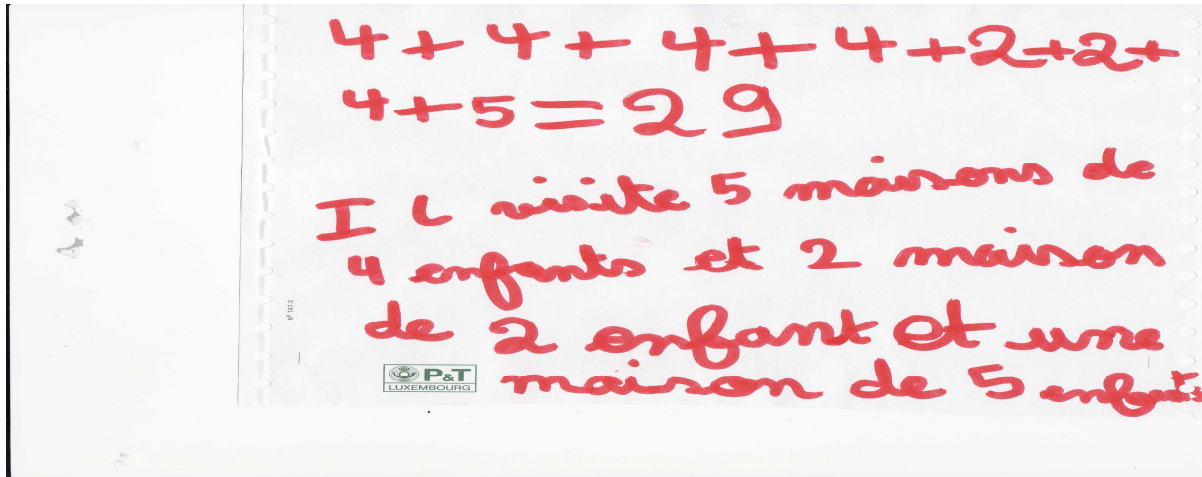 4 + 4 + 4 + 4 + 2 + 2 +
4 + 5 = 29
Il visite 5 maisons de
4 enfants et 2 maison
de 2 enfant et une
maison de 5 enfants
P&T
LUXEMBOURG